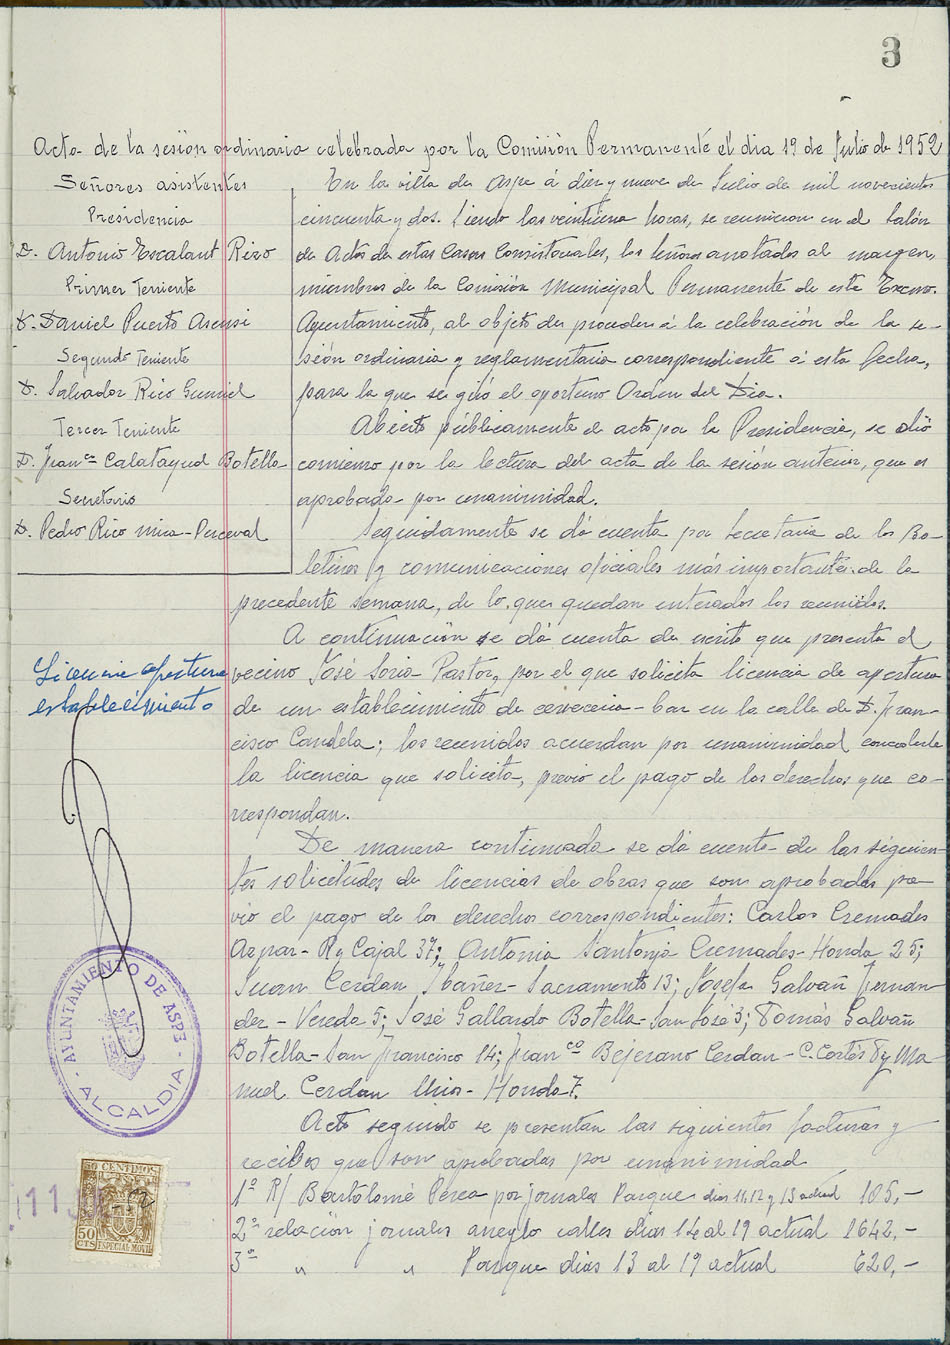 3
Acta de la sesión ordinaria celebrada por la Comisión Permanente el dia 19 de Julio de 1952
Señores asistentes
Presidencia
D. Antonio Escalant Rizo
Primer Teniente
D. Daniel Puerto Asensi
Segundo Teniente
D. Salvador Rico Gumiel
Tercer Teniente
D. Francᵒ Calatayud Botella
Secretario
D. Pedro Rico Mira-Perceval
En la villa de Aspe á diez y nueve de Julio de mil novecientos
cincuenta y dos. Siendo las veintiuna horas, se reunieron en el Salón
de Actos de estas Casas Consistoriales, los señores anotados al margen,
miembros de la Comisión Municipal Permanente de este Excmo.
Ayuntamiento, al objeto de proceder á la celebración de la se-
sión ordinaria y reglamentaria correspondiente á esta fecha,
para la que se giró el oportuno Orden del Dia.
Abierto públicamente el acto por la Presidencia, se dió
comienzo por la lectura del acta de la sesión anterior, que es
aprobada por unanimidad.
Seguidamente se dá cuenta por Secretaria de los Bo-
letines y comunicaciones oficiales más importantes de la
precedente semana, de lo que quedan enterados los reunidos.
Licencia apertura
establecimiento
A continuación se dá cuenta de escrito que presenta el
vecino José Soria Pastor, por el que solicita licencia de apertura
de un establecimiento de cerveceria-bar en la calle de D. Fran-
cisco Candela; los reunidos acuerdan por unanimidad concederle
la licencia que solicita, previo el pago de los derechos que co-
rrespondan.
De manera continuada se dá cuenta de las siguien-
tes solicitudes de licencias de obras que son aprobadas pre-
vio el pago de los derechos correspondientes: Carlos Cremades
Azpar- R y Cajal 37; Antonia Santonja Cremades- Honda 25;
Juan Cerdan Ybañez- Sacramento 13; Josefa Galvañ Fernan-
dez - Vereda 5; José Gallardo Botella- San José 3; Tomás Galvañ
Botella- San Francisco 14; Francᶜᵒ Bejerano Cerdan - C. Cortés 8 y Ma-
nuel Cerdan - Honda 7.
Acto seguido se presentan las siguientes facturas y
recibos que son aprobadas por unanimidad
1º R/ Bartolomé Pérea por jornales Parque dias 11, 12 y 13 actual 105,-
2º relación jornales arreglo calles dias 14 al 19 actual 1642,-
3º " " Parque dias 13 al 19 actual 620,-
AYUNTAMIENTO DE ASPE
- ALCALDIA -
50 CENTIMOS
50
CTS
ESPECIAL MOVIL